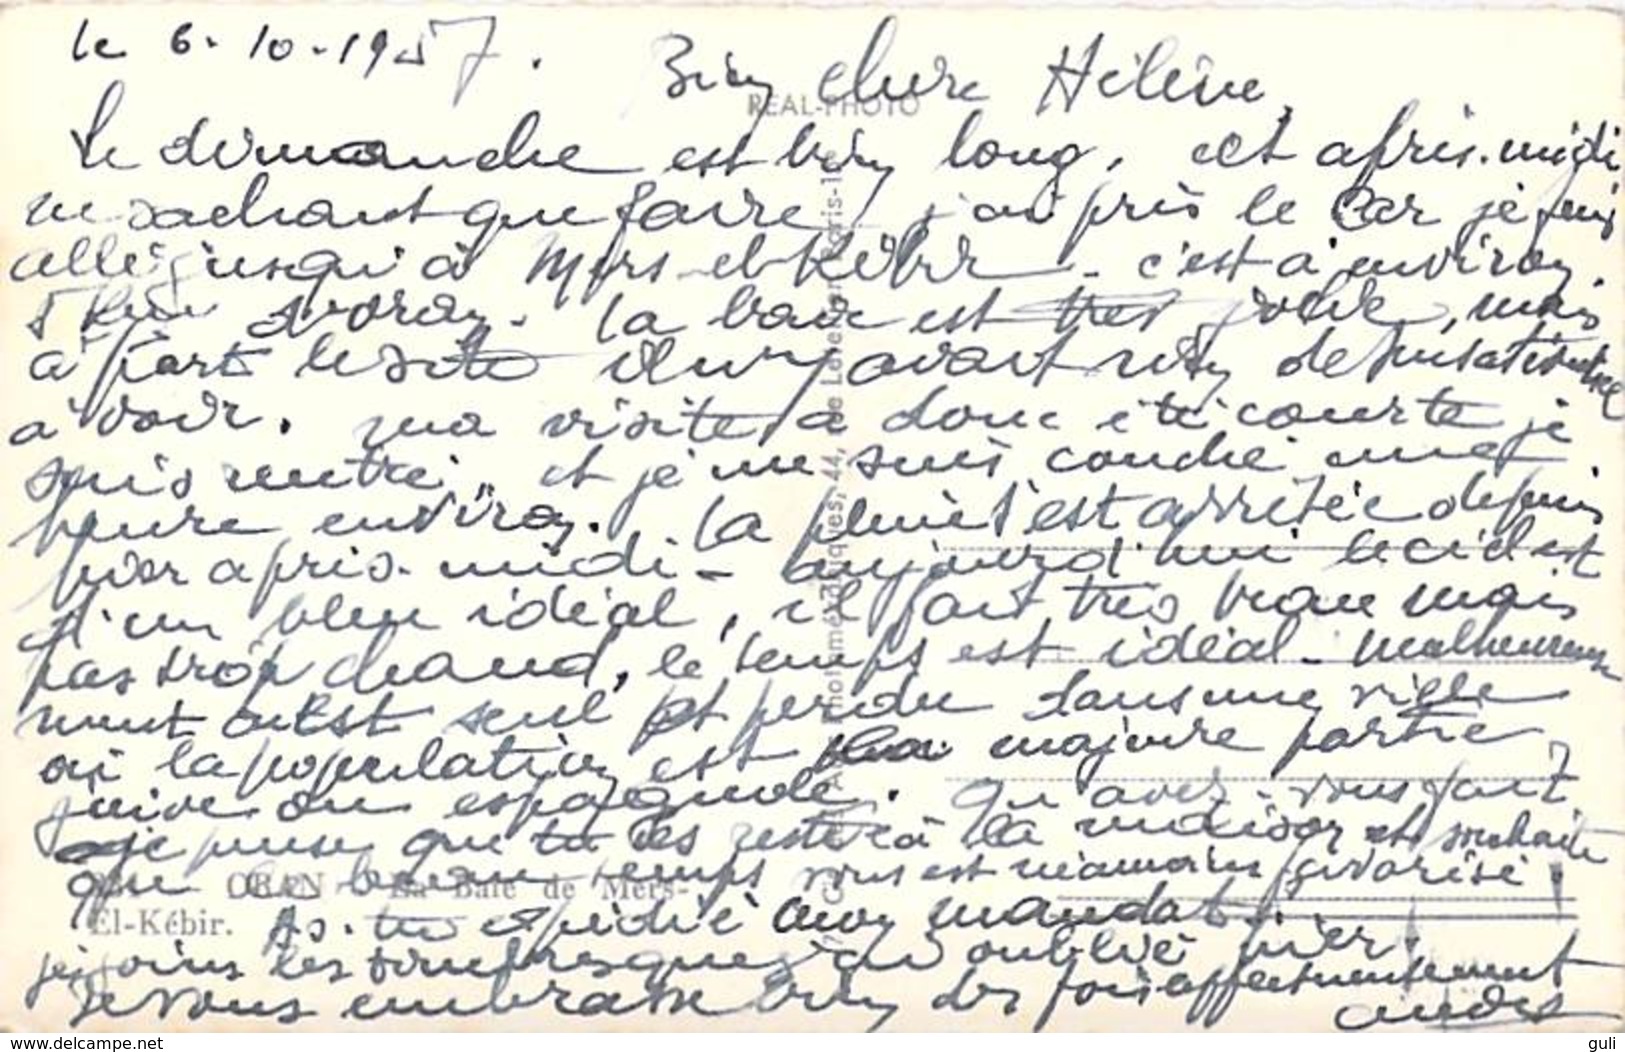 le 6-10-1957.
Bien chère Hélène,
REAL-PHOTO
Le dimanche est bien long, cet après-midi
ne sachant que faire j'ai pris le Car je suis
allé jusqu'à Mers-el-Kébir - c'est à environ
d'Oran. La baie est très jolie, mais
à part le site il n'y avait rien de sensationnel
à voir. ma visite a donc été courte je
suis rentré, et je me suis couché une
heure environ. La pluie s'est arrêtée depuis
hier après-midi - aujourd'hui le ciel est
d'un bleu idéal, il fait très beau mais
pas trop chaud, le temps est idéal - malheureuse
ment on est seul et perdu dans une ville
où la population est majeure partie
juive ou espagnole. Qu'avez-vous fait
je pense que tu es restée à la maison et souhaite
que le beau temps vous est néanmoins favorisé.
ORAN - La Baie de Mers-
El-Kébir.
As-tu expédié mon mandat.
je joins les timbres que j'ai oublié hier.
Je vous embrasse bien des fois affectueusement
André
www.delcampe.net
guli